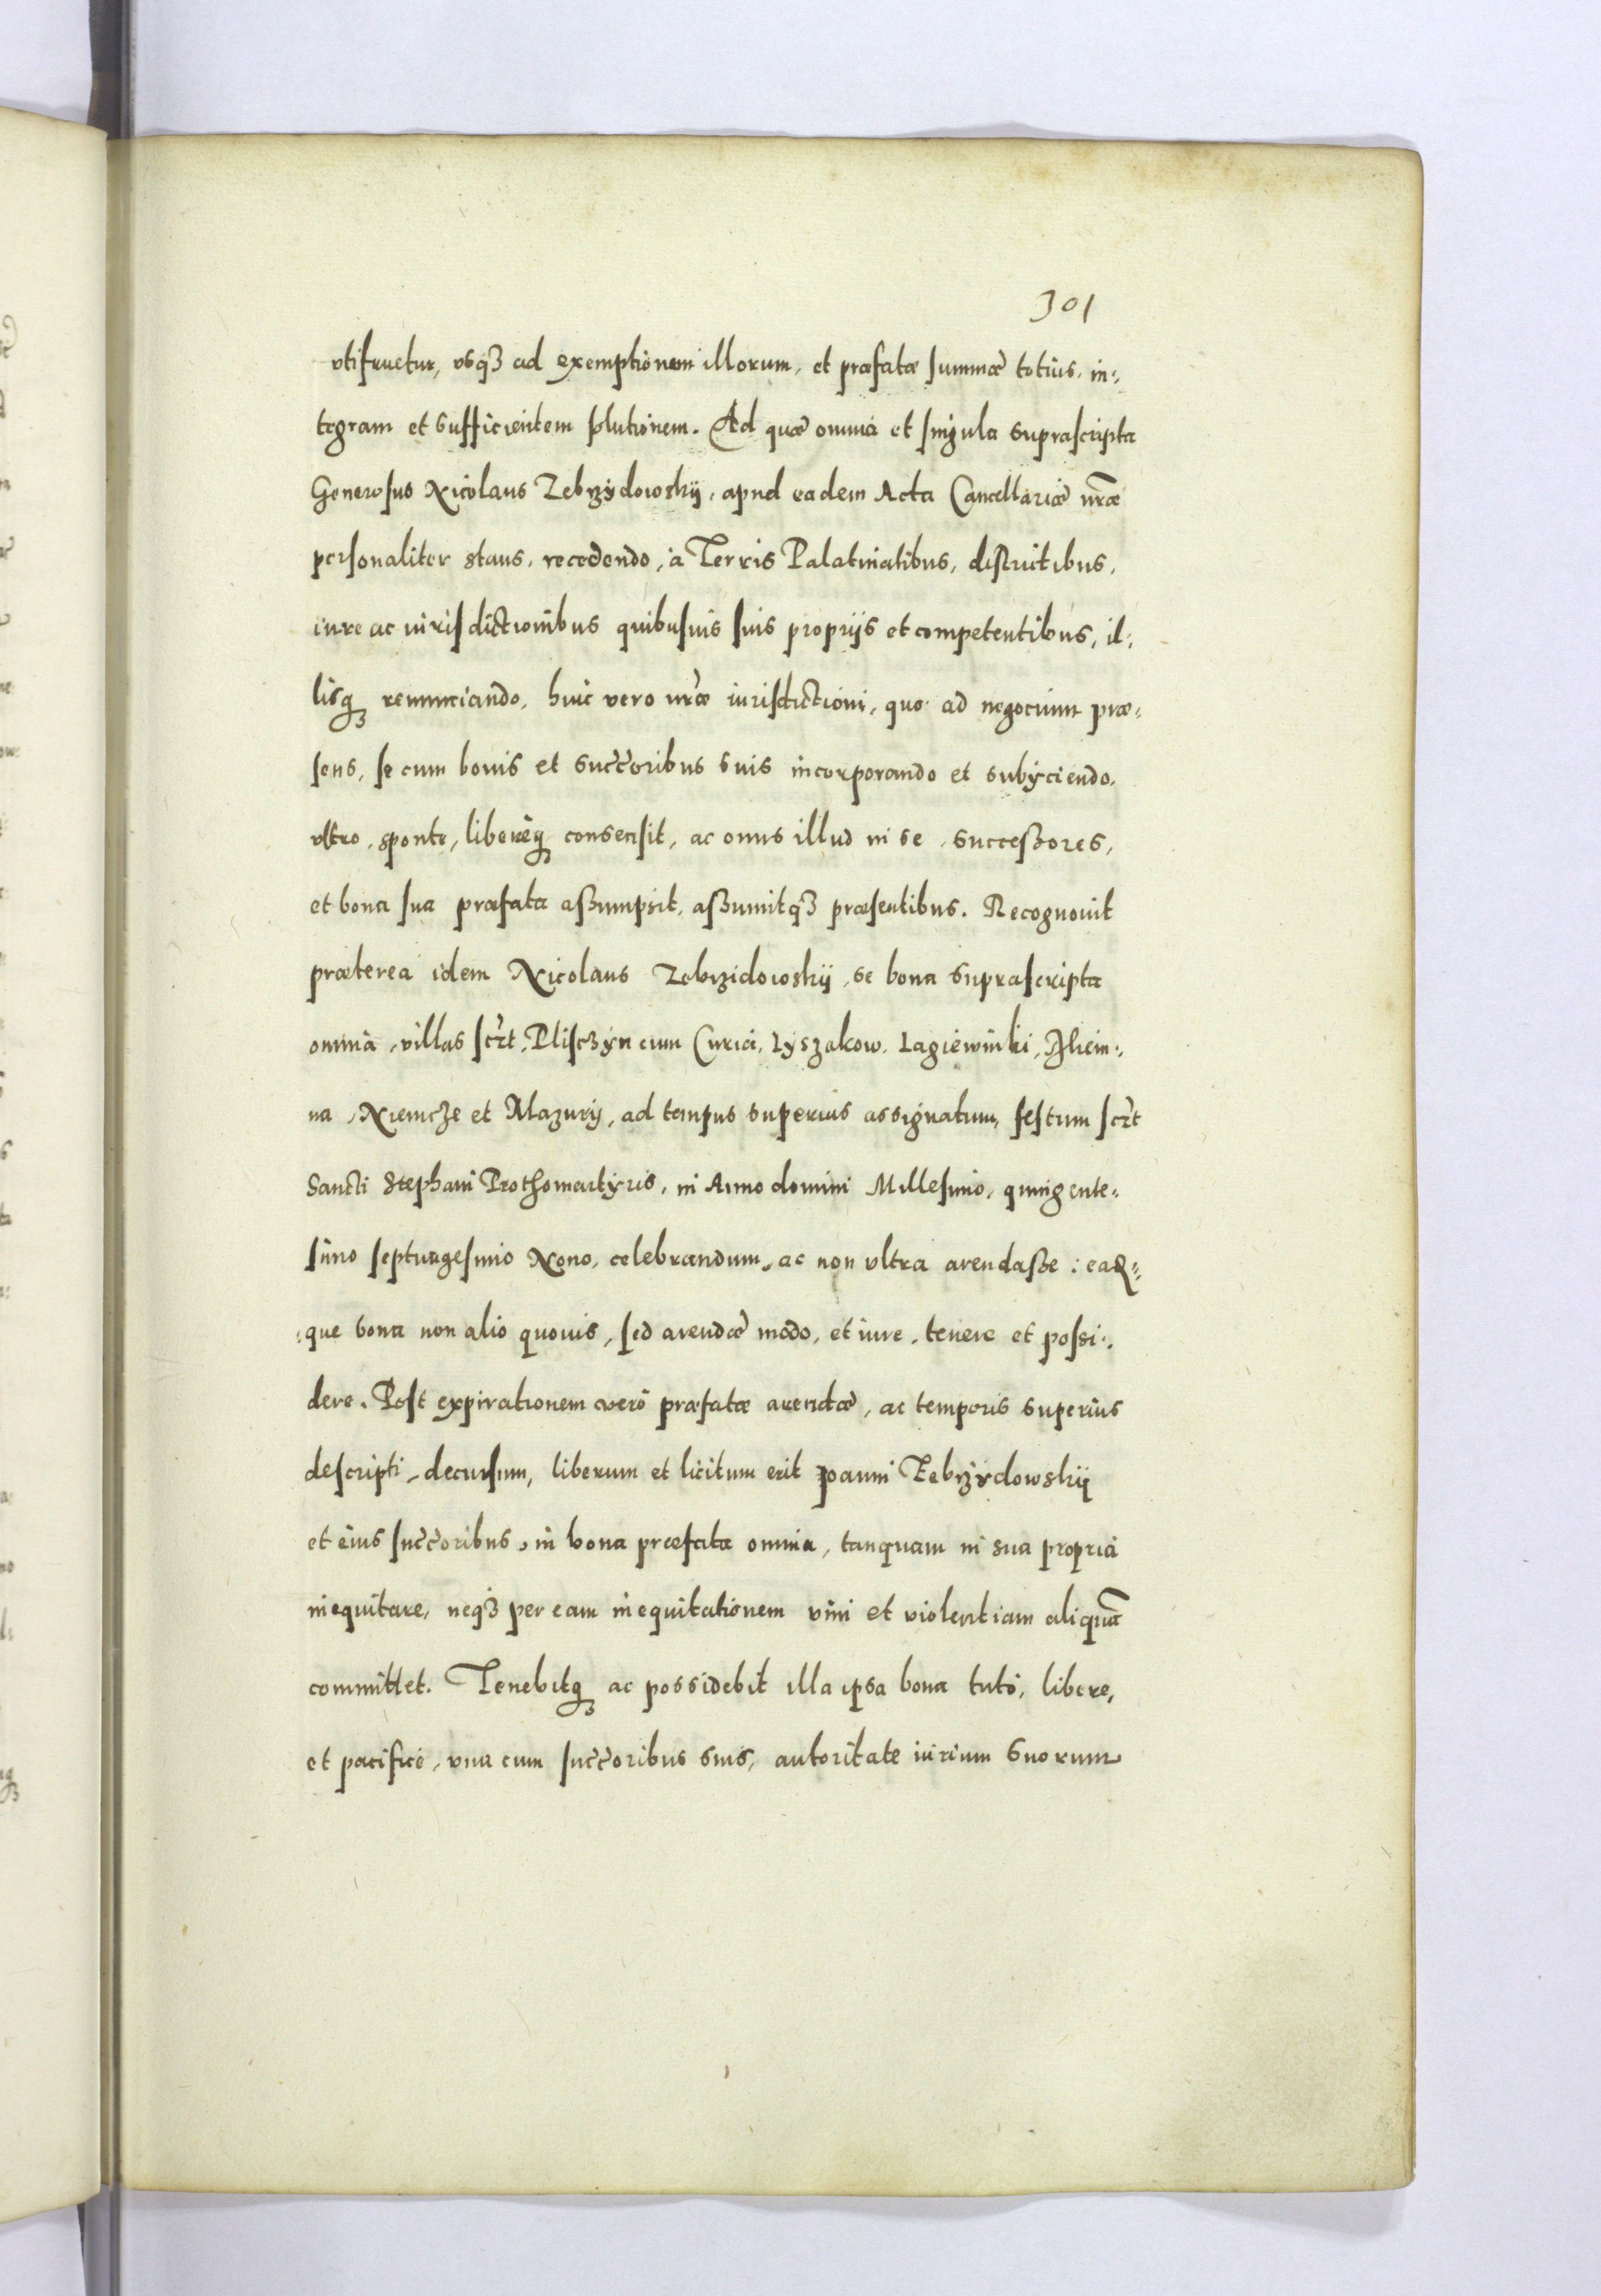 301
vtifruetur, vsqȝ ad exemptionem illorum, et præfatæ summæ totius, in=
tegram et sufficientem solutionem. Ad quæ omnia et singula suprascripta
Generosus Nicolaus Zebrzydowskij, apud eadem Acta Cancellariæ nr̃æ
personaliter stans, recedendo, à Terris Palatinatibus, districtibus,
iure ac iurisdictionibus quibusuis suis proprijs et competentibus, il=
lisqȝ renunciando, huic vero nr̃æ iurisdictioni, quo ad negocium præ=
sens, se cum bonis et succ̃oribus suis incorporando et subijciendo,
vltro, sponte, libereqȝ consensit, ac onus illud in se, successores,
et bona sua præfata assumpsit, assumitqȝ præsentibus. Recognouit
præterea idem Nicolaus Zebrzidowskij, se bona suprascripta
omnia, villas scr̃t, Pliszczyn cum Curia, Lyszakow, Lagiewniki,
na, Niemcze et Mazury, ad tempus superius assignatum, festum scr̃t
Sancti Stephani Prothomartyris, in Anno domini Millesimo, quingente=
simo septuagesimo Nono, celebrandum, ac non vltra arendasse: ea=
que bona non alio quouis, sed arendæ modo, et iure, tenere et possi=
dere. Post expirationem verò præfatæ arendæ, ac temporis superius
descripti, decursum, liberum et licitum erit Joanni Zebrzydowskij
et eius succ̃oribus, in bona præfata omnia, tanquam in sua propria
inequitare, neqȝ per eam inequitationem vim et violentiam aliquã
committet. Tenebitqȝ ac possidebit illa ipsa bona tutò, liberè,
et pacificè, vna cum succ̃oribus suis, autoritate iurium suorum